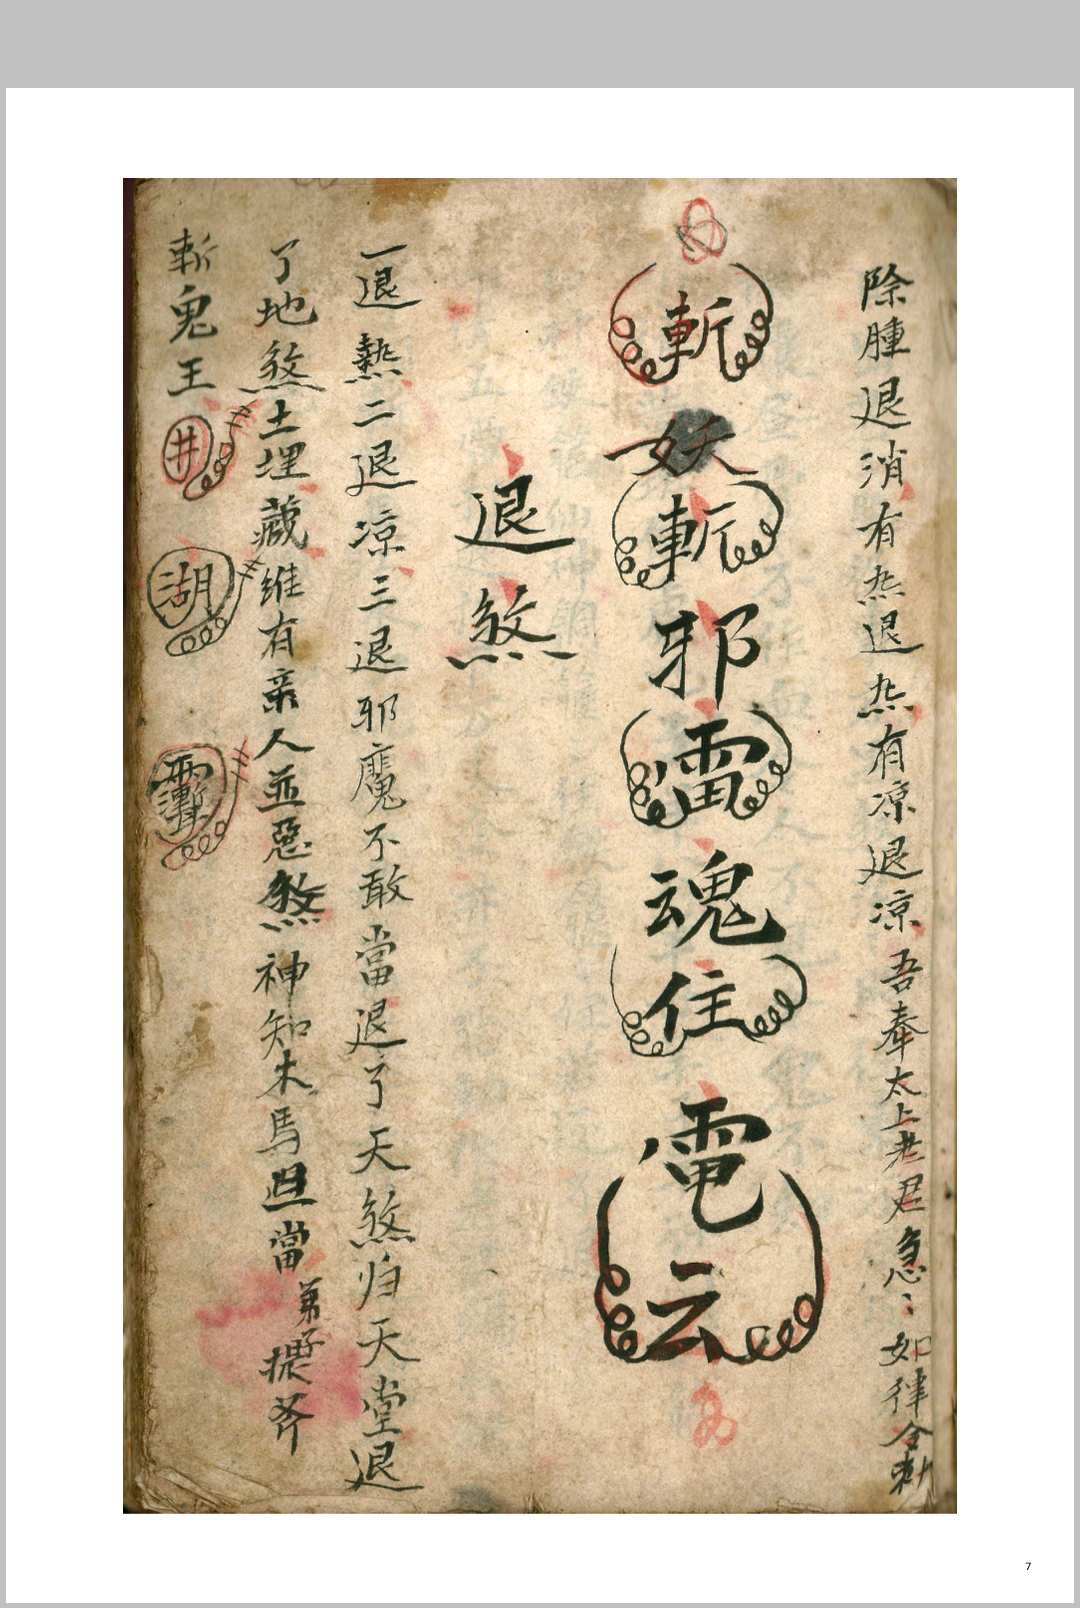 除腫退消有𤍠退𤍠有凉退凉吾奉太上老君急〻如律令敕
斬妖斬邪雷魂住電云
退煞
一退熱二退凉三退邪魔不敢當退了天煞归天堂退
了地煞土埋藏维有亲人並惡煞神知木馬當弟子攔斧
斬鬼王井
湖
7